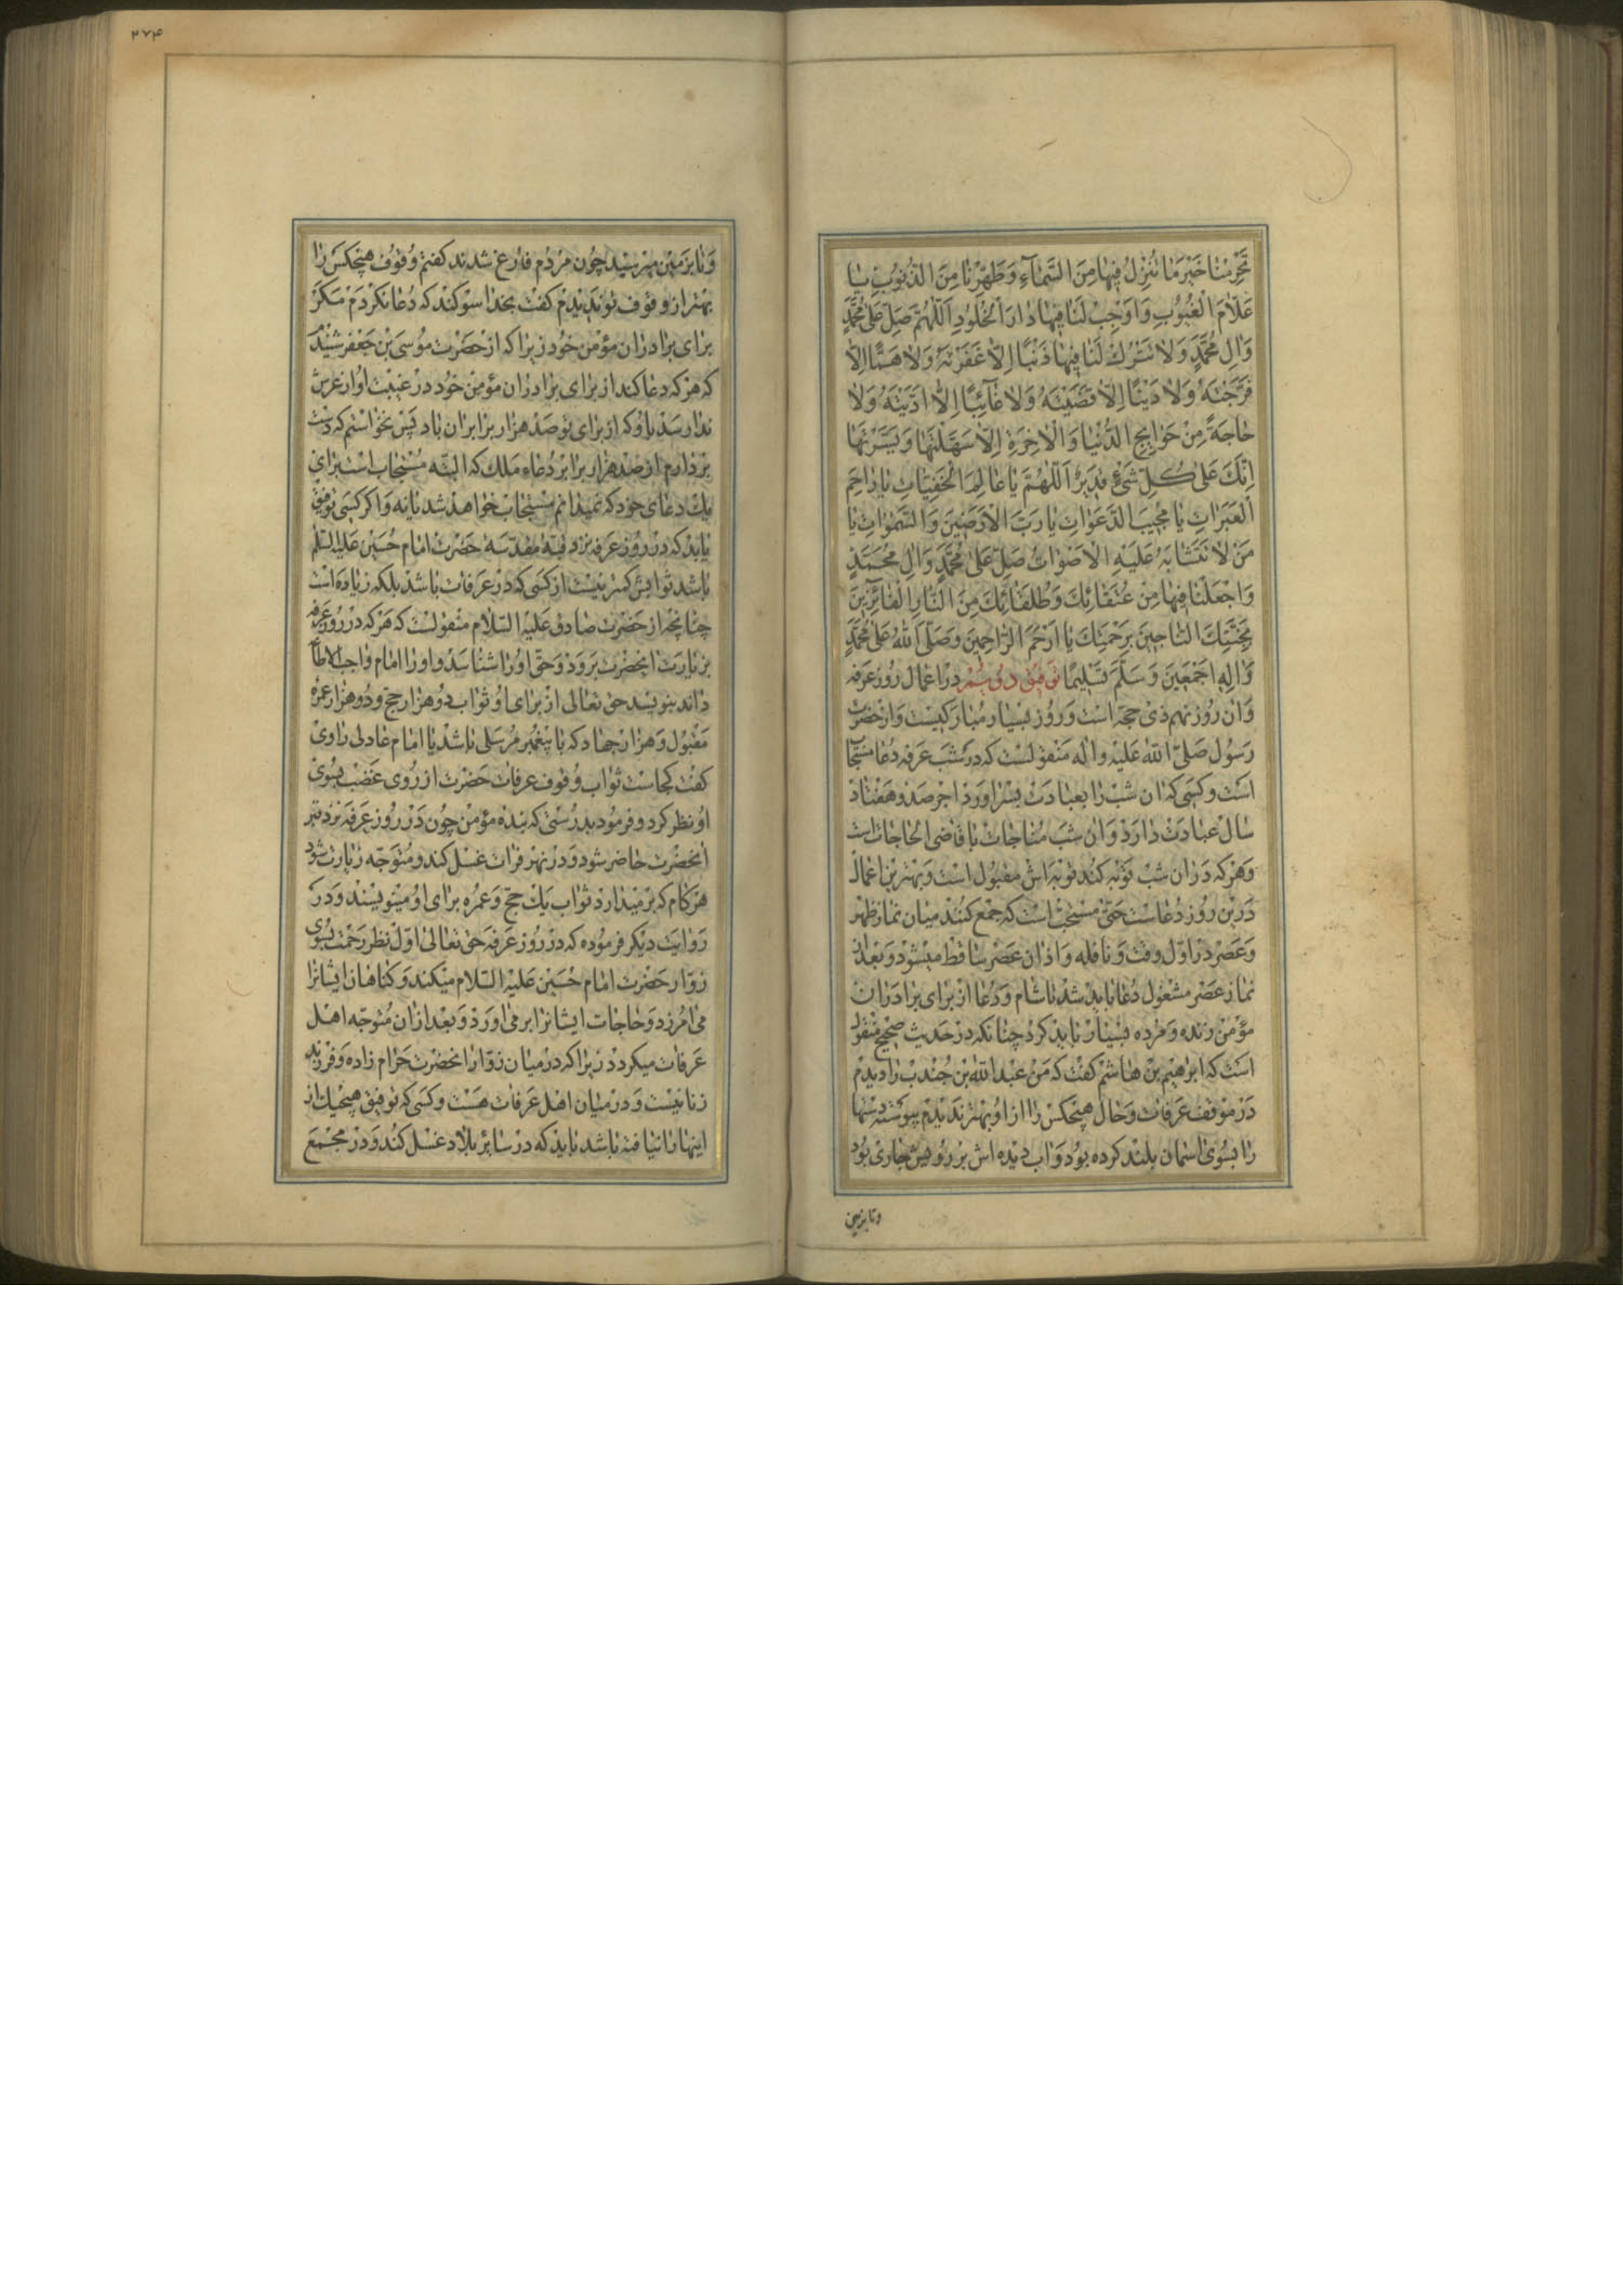 تَحْرِمْنَا خَيْرَ مَا تُنْزِلُ فِيهَا مِنَ السَّمَآءِ وَطَهِّرْنَا مِنَ الذُّنُوبِ يَا
عَلَّامَ الْغُيُوبِ وَاَوْجِبْ لَنَا فِيهَا دَارَ الْخُلُودِ اَللّٰهُمَّ صَلِّ عَلٰى مُحَمَّدٍ
وَاٰلِ مُحَمَّدٍ وَلَا تَتْرُكْ لَنَا فِيهَا ذَنْبًا اِلَّا غَفَرْتَهُ وَلَا هَمًّا اِلَّا
فَرَّجْتَهُ وَلَا دَيْنًا اِلَّا قَضَيْتَهُ وَلَا غَآئِبًا اِلَّا اَدَّيْتَهُ وَلَا
حَاجَةً مِنْ حَوَآئِجِ الدُّنْيَا وَالْاٰخِرَةِ اِلَّا سَهَّلْتَهَا وَيَسَّرْتَهَا
اِنَّكَ عَلٰى كُلِّ شَىْءٍ قَدِيرٌ اَللّٰهُمَّ يَا عَالِمَ الْخَفِيَّاتِ يَا رَاحِمَ
الْعَبَرَاتِ يَا مُجِيبَ الدَّعَوَاتِ يَا رَبَّ الْاَرَضِينَ وَالسَّمٰوَاتِ يَا
مَنْ لَا تَتَشَابَهُ عَلَيْهِ الْاَصْوَاتُ صَلِّ عَلٰى مُحَمَّدٍ وَاٰلِ مُحَمَّدٍ
وَاجْعَلْنَا فِيهَا مِنْ عُتَقَآئِكَ وَطُلَقَآئِكَ مِنَ النَّارِ الْفَآئِزِينَ
بِجَنَّتِكَ النَّاجِينَ بِرَحْمَتِكَ يَا اَرْحَمَ الرَّاحِمِينَ وَصَلَّى اللّٰهُ عَلٰى مُحَمَّدٍ
وَاٰلِهِ اَجْمَعِينَ وَسَلَّمَ تَسْلِيمًا توفيق دويم در اعمال روز عرفه
وان روز نهم ذى حجه است و روز بسيار مباركيست و از حضرت
رسول صلى الله عليه واله منقولست كه در شب عرفه دعا مستجاب
است و كسى كه ان شب را بعبادت بسر اورد اجر صد و هفتاد
سال عبادت دارد و ان شب مناجات با قاضى الحاجات است
و هر كه در ان شب توبه كند توبه اش مقبول است و بهترين اعمال
درين روز دعاست حتى مستحب است كه جمع كنند ميان نماز ظهر
و عصر در اول وقت و نافله و اذان عصر ساقط ميشود و بعد از
نماز عصر مشغول دعا بايد شد تا شام و دعا از براى برادران
مؤمن زنده و مرده بسيار بايد كرد چنانكه در حديث صحيح منقول
است كه ابرهيم بن هاشم كفت كه من عبد الله بن جندب را ديدم
در موقف عرفات و حال هيچكس را از او بهتر نديدم پيوسته دستها
را بسوى اسمان بلند كرده بود و اب ديده اش بر رويش جارى بود
وتا بزمين
۲۷۴
و تا بزمين ميرسيد چون مردم فارغ شدند كفتم وقوف هيچكس را
بهتر از وقوف تو نديدم كفت بخدا سوكند كه دعا نكردم مكر
براى برادران مؤمن خود زيرا كه از حضرت موسى بن جعفر شنيدم
كه هر كه دعا كند از براى برادران مؤمن خود در غيبت او از عرش
ندا رسد باو كه از براى تو صد هزار برابر ان باد پس نخواستم كه دست
بردارم از صد هزار برابر دعاء ملك كه البته مستجاب است براى
يك دعاى خود كه نميدانم مستجاب خواهد شد يا نه و اكر كسى توفيق
يابد كه در روز عرفه نزد قبه مقدسه حضرت امام حسين عليه السلم
باشد ثوابش كمتر نيست از كسى كه در عرفات باشد بلكه زياده است
چنانچه از حضرت صادق عليه السلام منقولست كه هر كه در روز عرفه
بزيارت انحضرت برود و حق او را شناسد و او را امام واجب الاطاعه
داند بنويسد حق تعالى از براى او ثواب دو هزار حج و دو هزار عمره
مقبول و هزار جهاد كه با پيغمبر مرسلى باشد يا امام عادلى راوى
كفت كجاست ثواب وقوف عرفات حضرت از روى غضب بسوى
او نظر كرد و فرمود بدرستى كه بنده مؤمن چون در روز عرفه نزد قبر
انحضرت حاضر شود و در نهر فرات غسل كند و متوجه زيارت شود
هر كام كه برميدارد ثواب يك حج و عمره براى او مينويسند و در
روايت ديكر فرموده كه در روز عرفه حق تعالى اول نظر رحمت بسوى
زوار حضرت امام حسين عليه السلام ميكند و كناهان ايشانرا
مى امرزد و حاجات ايشانرا بر مى اورد و بعد از ان متوجه اهل
عرفات ميكردد زيرا كه در ميان زوار انحضرت حرام زاده و فرزند
زنا نيست و در ميان اهل عرفات هست و كسى كه توفيق هيچيك از
اينها را نيافته باشد بايد كه در ساير بلاد غسل كند و در مجمع